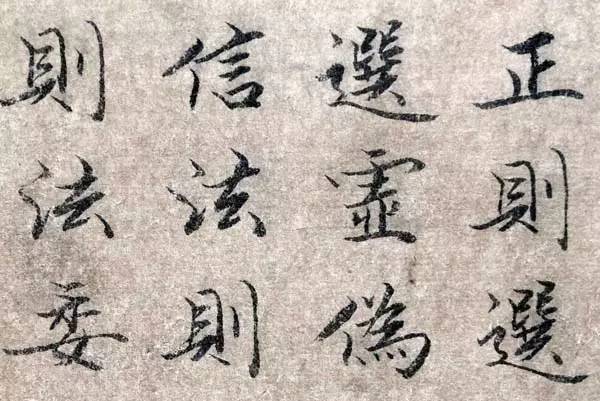 正則選
選虛偽
信法則
則法委